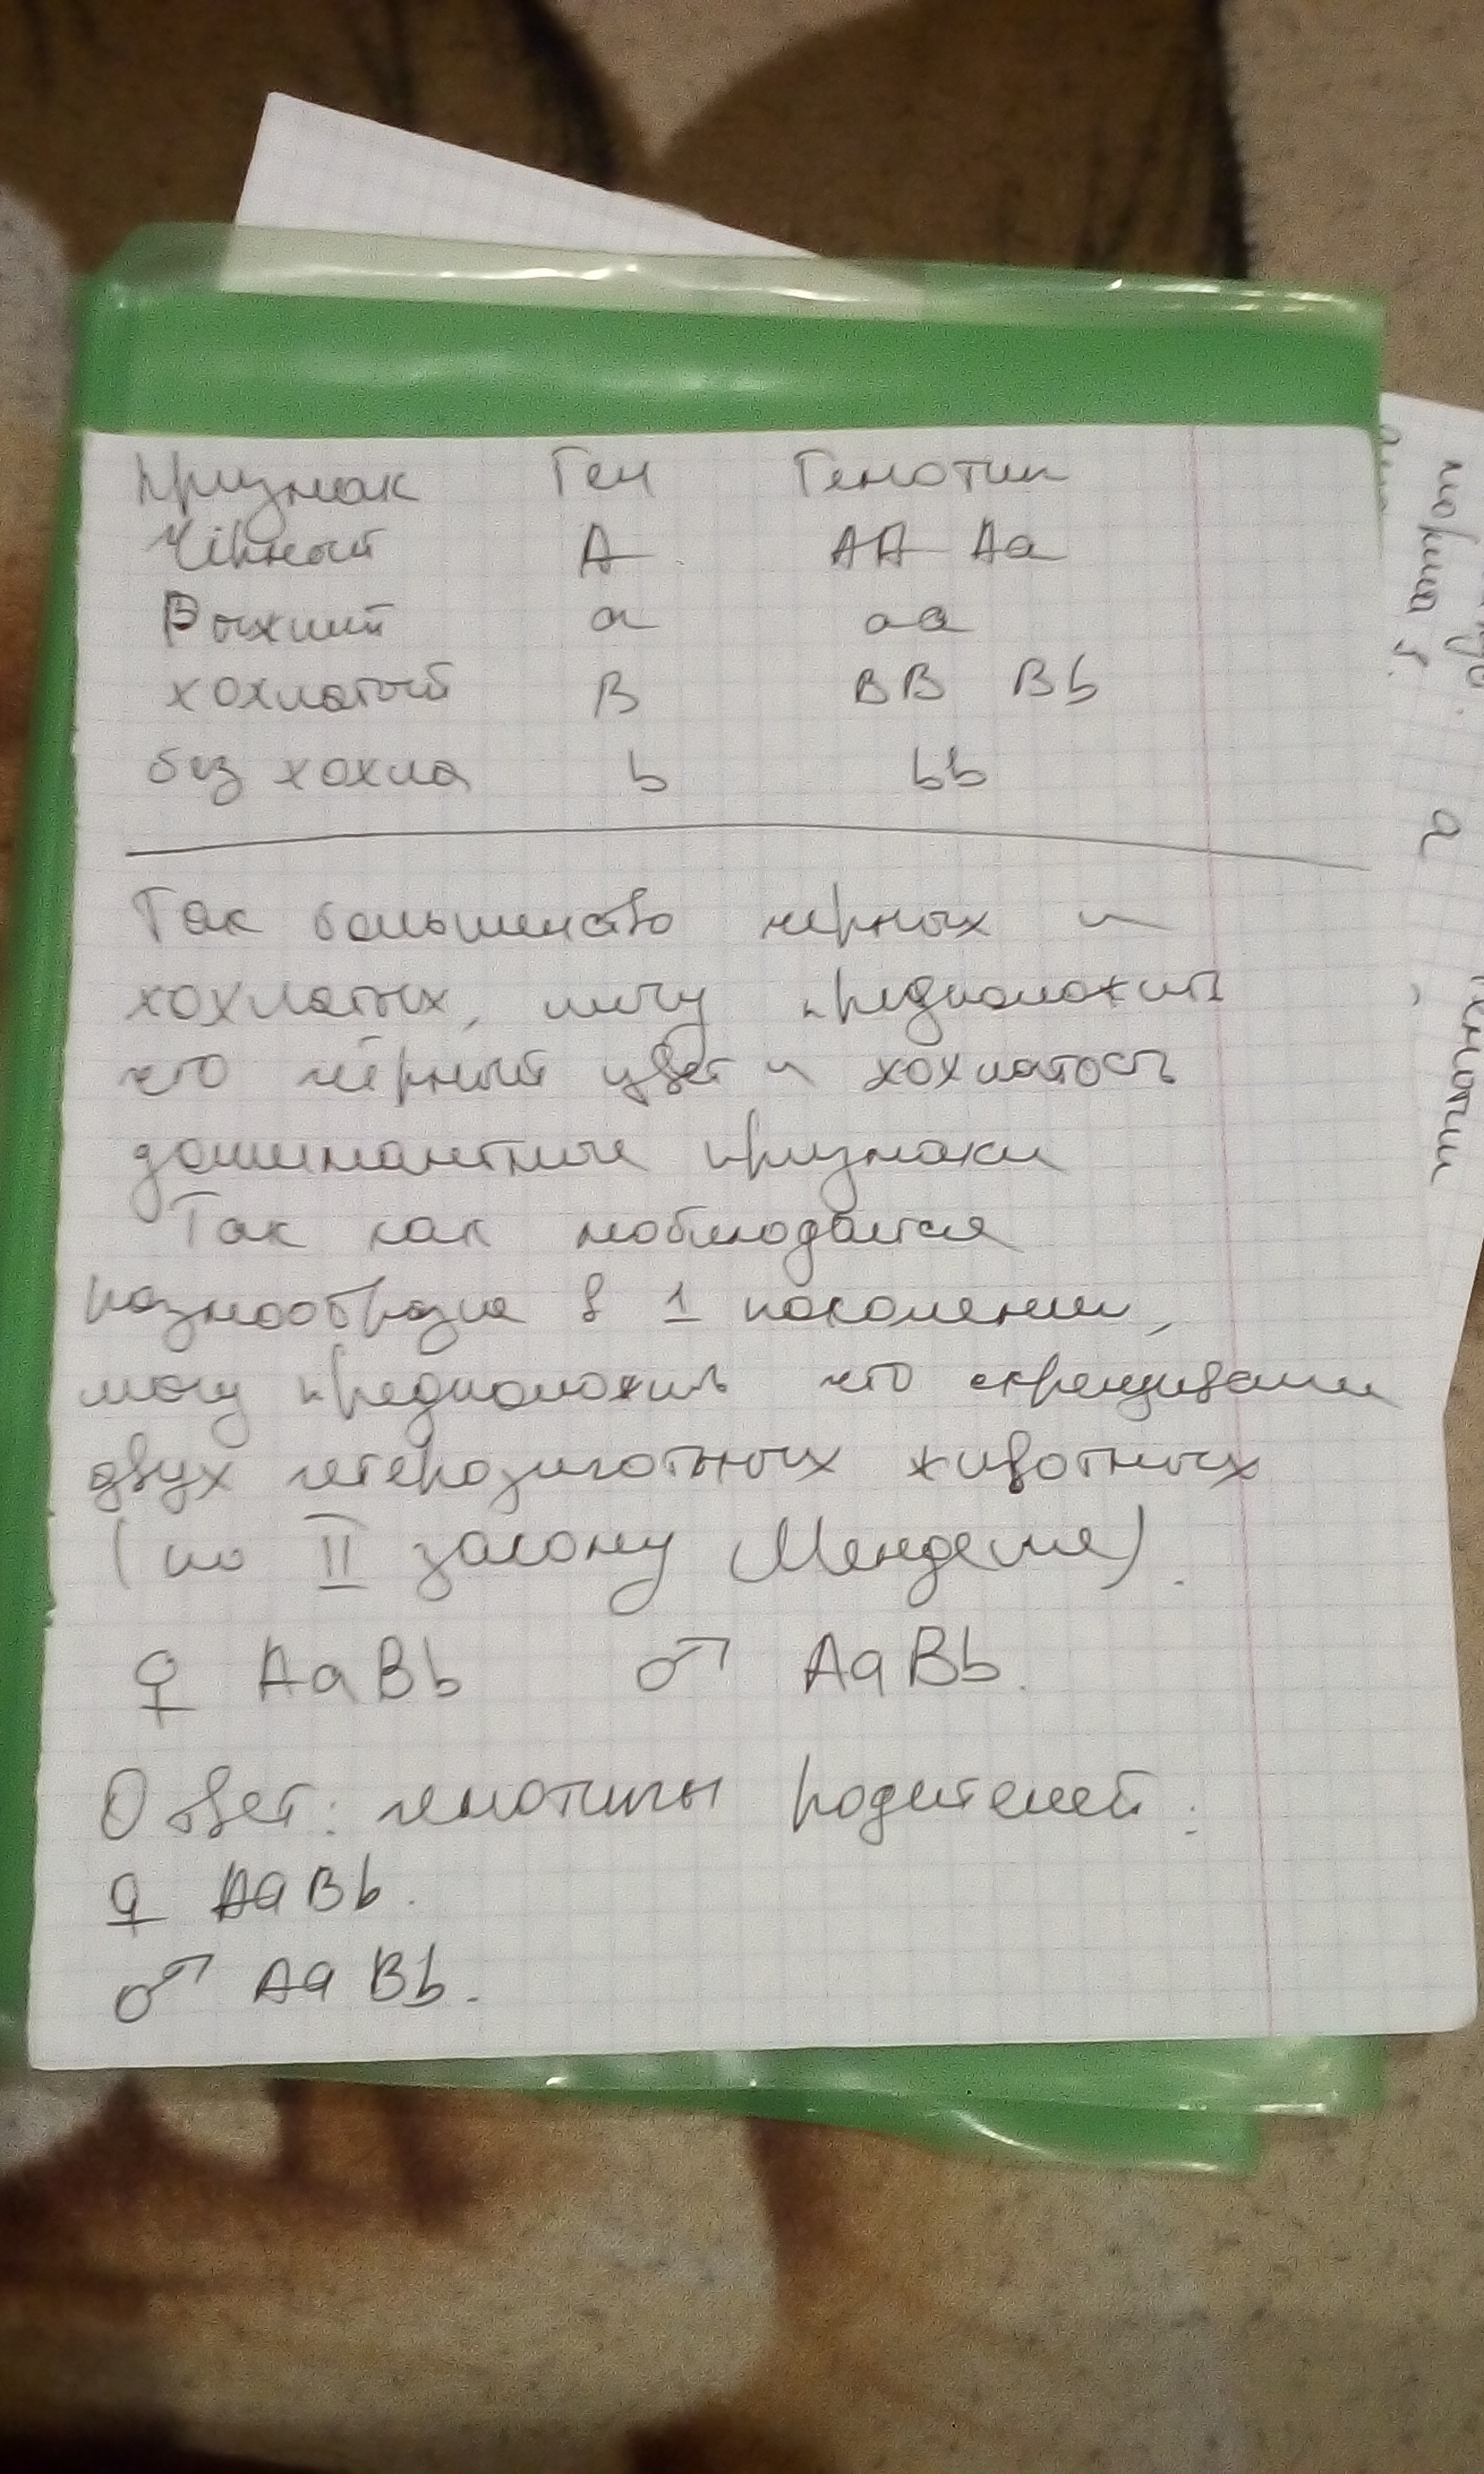 Признак Ген Генотип
Чёрный А АА Аа
Рыжий а аа
хохлатый В ВВ Вb
без хохла b bb
Так большенство черных и
хохлатых, могу предположить
что чёрный цвет и хохлатость
доминантные признаки
Так как наблюдается
разнообразие в 1 поколении,
могу предположить что скрещивали
двух гетерозиготных животных
(по II закону Менделя).
♀ AaBb ♂ AaBb.
Ответ: генотипы родителей:
♀ AaBb.
♂ AaBb.